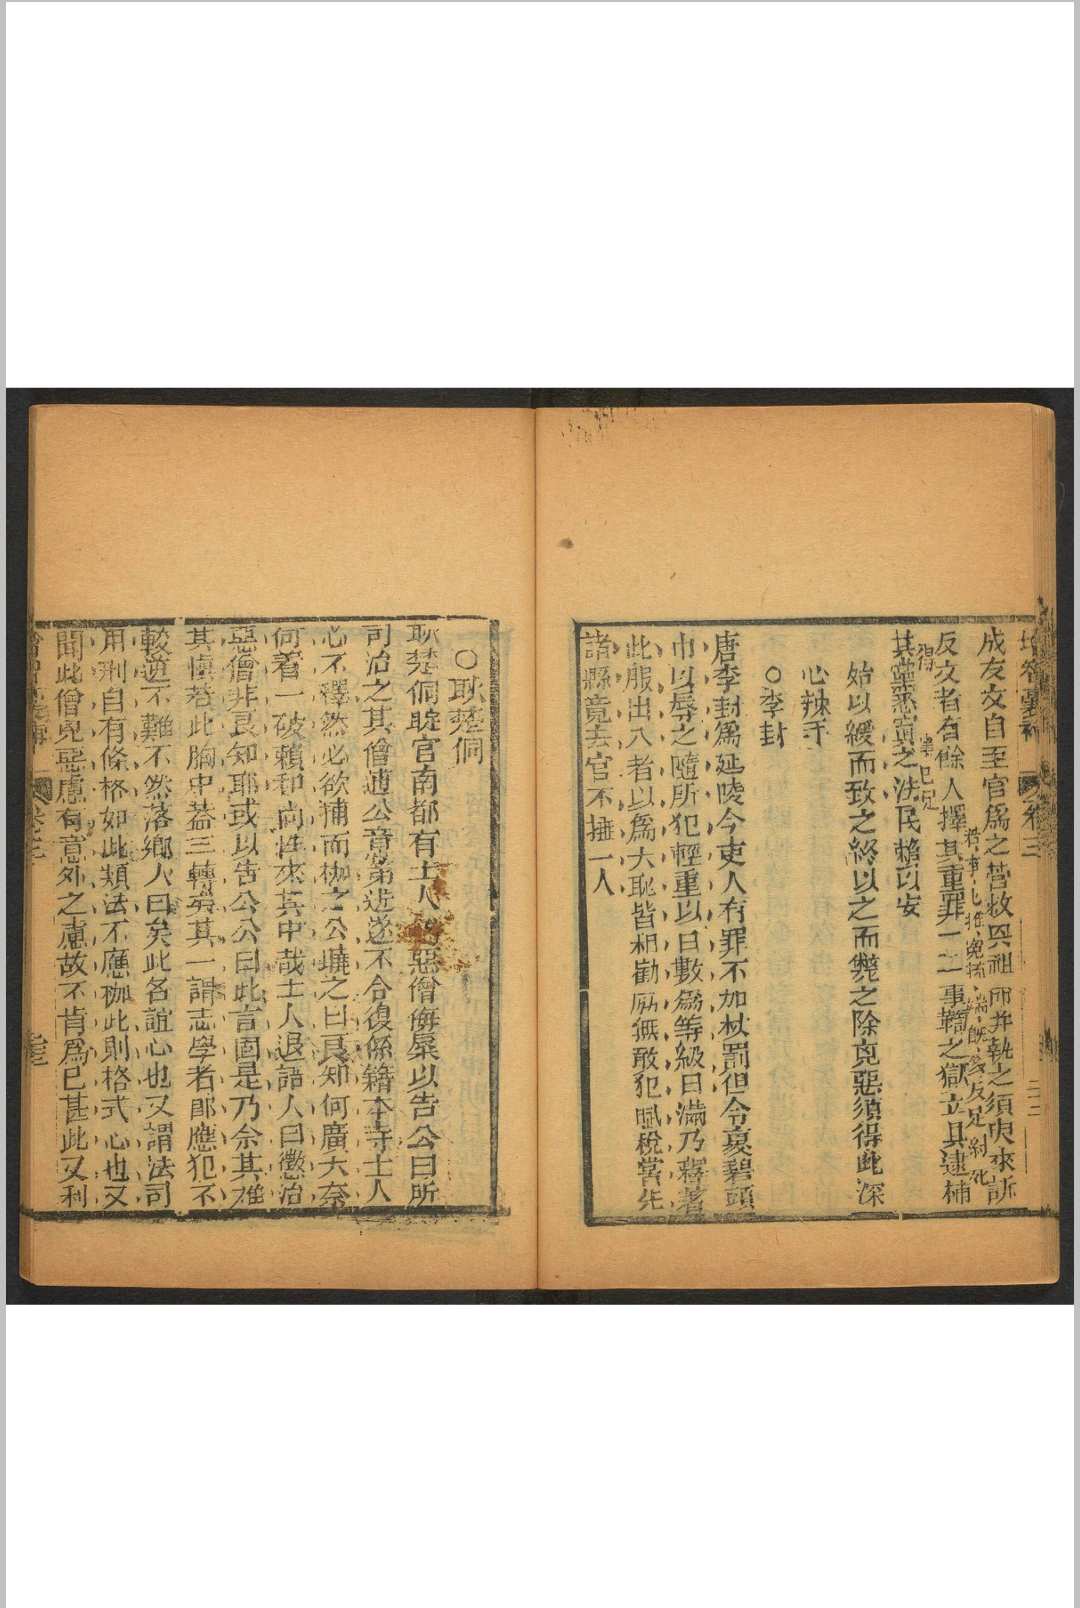 增智囊補 卷三 二十二
成友文自至官爲之營救與祖師并執之須臾來訴
反文者百餘人擇其重罪一二事鞫之獄立具逮捕
其黨悉寘之法民賴以安
始以緩而致之終以之而斃之除克惡須得此深
心辣手
○李封
唐李封爲延陵令吏人有罪不加杖罰但令裹碧頭
巾以辱之隨所犯輕重以日數爲等級日滿乃釋著
此服出入者以爲大恥皆相勸勵無敢犯賦稅嘗先
諸縣竟去官不捶一人
○耿楚侗
耿楚侗定官南都有士人爲惡僧侮辱以告公曰所
司治之其僧遁公意第迸逐不令復係籍本寺士人
心不釋然必欲捕而枷之公曉之曰良知何廣大奈
何着一破賴和尚往來其中哉士人退語人曰懲治
惡僧非良知耶或以告公公曰此言固是乃余其難
其慎若此胸中蓋三轉矣其一謂志學者即應犯不
較逆不難不然落鄉人曰矣此名誼心也又謂法司
用刑自有條格如此類法不應枷此則格式心也又
聞此僧兇惡慮有意外之慮故不肯爲已甚此又利
卷三